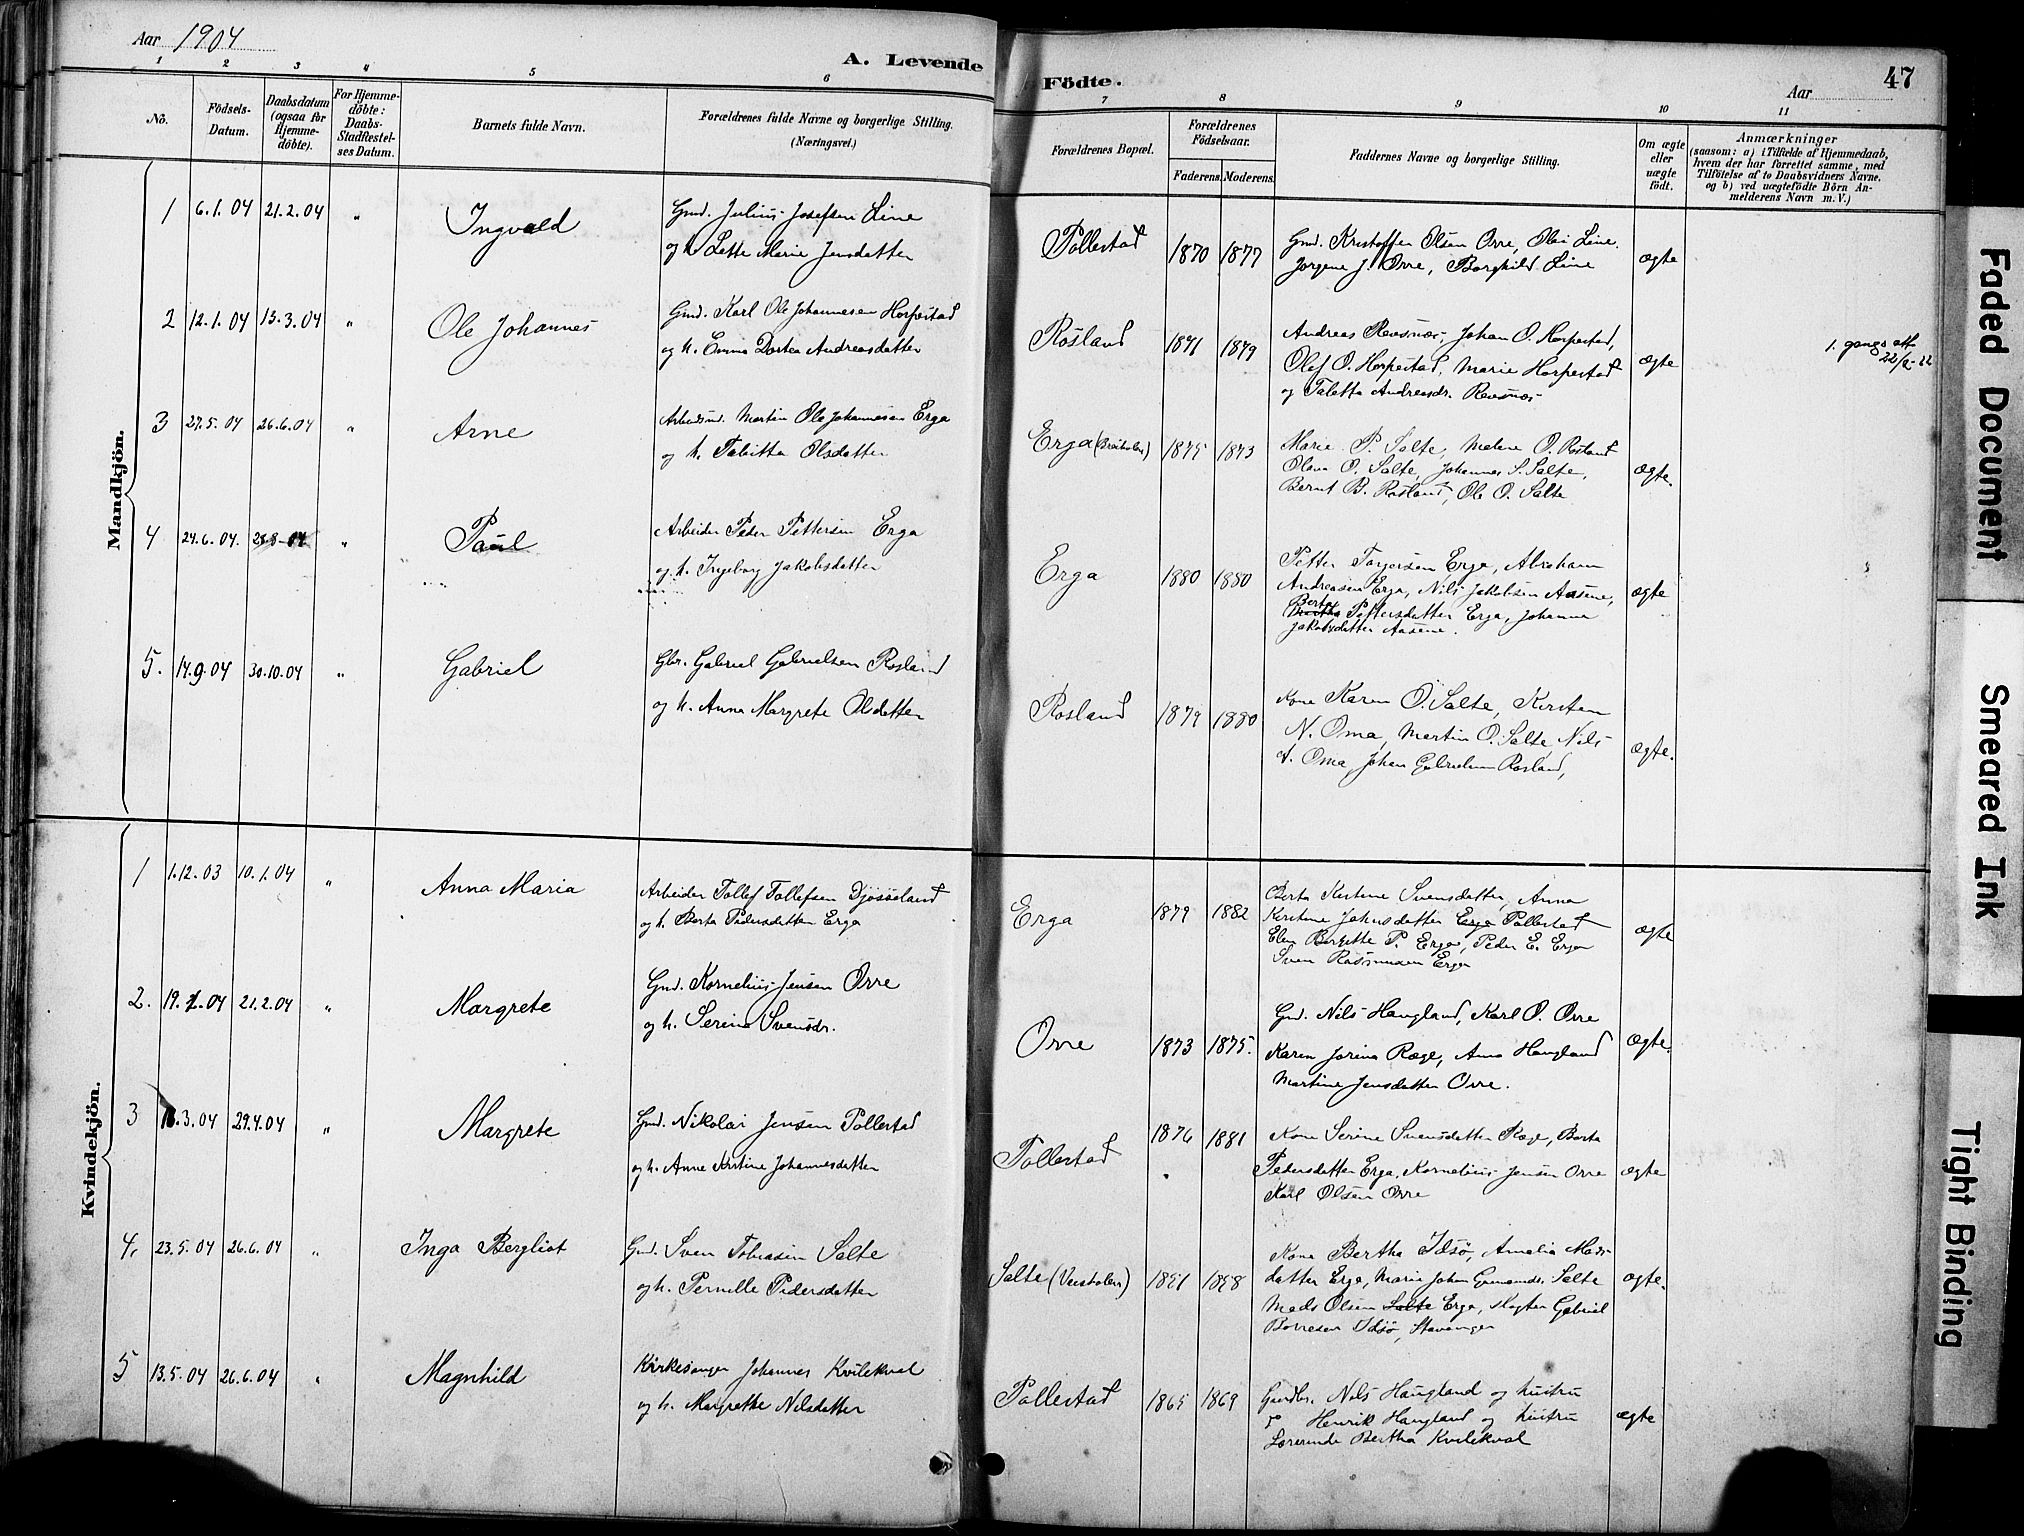 Aar 1904
A. Levende Födte.
Aar
47
1 2 3 4 5 6 7 8 9 10 11
No.
Födsels-Datum.
Daabsdatum (ogsaa for Hjemme-döbte).
For Hjemme-döbte: Daabs-Stadfestel-ses Datum.
Barnets fulde Navn.
Forældrenes fulde Navne og borgerlige Stilling. (Næringsvei.)
Forældrenes Bopæl.
Forældrenes Födselsaar.
Faderens. Moderens.
Faddernes Navne og borgerlige Stilling.
Om ægte eller uægte födt.
Anmærkninger
(saasom: a) i Tilfælde af Hjemmedaab,
hvem der har forrettet samme, med
Tilföielse af to Daabsvidners Navne.
og b) ved uægtefödte Börn An-
melderens Navn m. V.)
Mandkjön.
1 6.1.04 21.2.04 " Ingvald
Gmd. Julius Josefsen Line
og h. Lette Marie Jensdatter
Pollestad 1870 1877
Gmd. Kristoffer Olsen Orre, Olai Line.
Jorgine J. Orre, Borghild Line
ægte
2 12.1.04 13.3.04 " Ole Johannes
Gmd. Karl Ole Johannesen Horpestad
og h. Emma Dortea Andreasdatter
Rosland 1871 1879
Andreas Revsnæs, Johan O. Horpestad,
Olaf O. Horpestad, Marie Horpestad
og Taletta Andreasdr. Revsnæs
ægte
1. gangs att
22/2-22
3 27.5.04 26.6.04 " Arne
Arbeidsmd. Martin Ole Johannesen Erga
og h. Tabitta Olsdatter
Erga 1875 1873
Marie P. Salte, Malene O. Rosland
Olava O. Salte, Johannes S. Salte,
Bernt B. Rosland, Ole O. Salte
ægte.
4 24.6.04. 28.8-04 " Paul
Arbeider Peder Pettersen Erga
og h. Ingeborg Jakobsdatter
Erga 1880 1880
Petter Torgersen Erga, Abraham
Andreasen Erga, Nils Jakobsen Aasene,
Berta Pettersdatter Erga, Johanna
Jakobsdatter Aasene.
ægte
5. 14.9.04 30.10.04 " Gabriel
Gbr. Gabriel Gabrielsen Rosland
og h. Anna Margrete Olsdatter
Rosland 1879 1880
Kone Karen O. Salte, Kirsten
N. Oma, Martin O. Salte, Nils
A. Oma, Johan Gabrielsen Rosland,
ægte.
Kvindekjön.
1 1.12.03 10.1.04 " Anna Maria
Arbeider Tollef Tollefsen Djösöeland
og h. Berta Pedersdatter Erga
Erga 1879 1882
Berta Kistine Svensdatter, Anna
Kirstine Jahnsdatter Erga Pollestad
Elen Bergitte P. Erga, Peder E. Erga
Sven Rasmussen Erga
ægte
2. 19.1.04 21.2.04 " Margrete
Gmd. Kornelius Jensen Orre
og h. Serina Svensdr.
Orre 1873 1875.
Gmd. Nils Haugland, Karl O. Orre
Karen Jorina Ræge, Anna Haugland
Martine Jensdatter Orre.
ægte.
3 16.3.04 29.4.04 " Margrete
Gmd. Nikolai Jensen Pollestad
og h. Anne Kristine Johannesdatter
Pollestad 1876 1881
Kone Serine Svensdatter Ræge, Berta
Pedersdatter Erga, Kornelius Jensen Orre
Karl Olsen Orre
ægte
4. 23.5.04 26.6.04 " Inga Bergliot
Gmd. Sven Tobiasen Salte
og h. Pernille Pedersdatter
Salte 1898
Kone Bertha Idsø, Amalia Mads-
datter Erga, Marie Johan Salte
Mads Olsen Salte Erga, slagter Gabriel
Borresen Idsø, Stavanger
ægte.
5 13.5.04 26.6.04 " Magnhild
Kirkesanger Johannes Kvilekval
og h. Margrethe Nilsdatter
Pollestad 1865 1869
Gardbr. Nils Haugland og hustru
Henrik Haugland og hustru
Lærerinde Bertha Kvilekval
ægte
Faded Document
Smeared Ink
Tight Binding